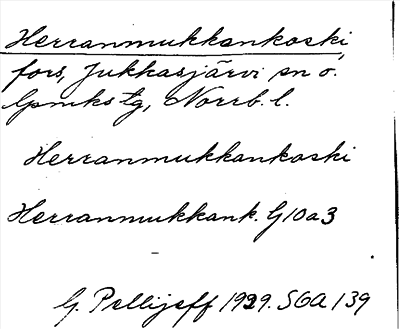 Herranmukkankoski,
fors, Jukkasjärvi sn o.
lpmks tg, Norrb. l.
Herranmukkankoski
Herranmukkank. G10a3
G. Pellijeff 1929. SGA 139